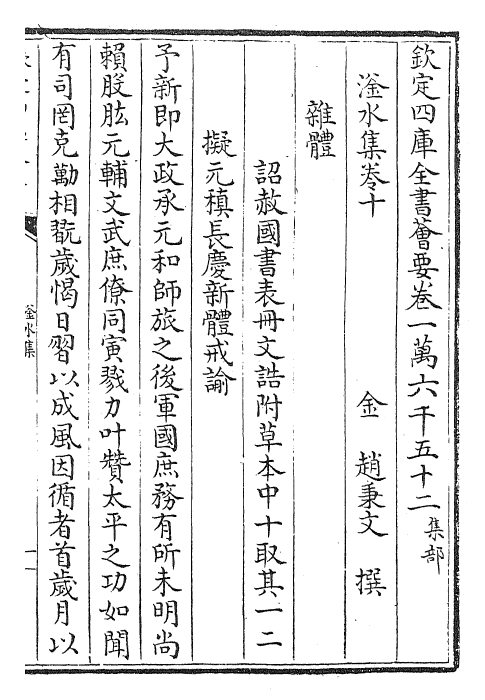 欽定四庫全書薈要卷一萬六千五十二 集部
滏水集卷十 金 趙秉文 撰
雜體
詔赦國書表冊文誥附草本中十取其一二
擬元稹長慶新體戒諭
予新即大政承元和師旅之後軍國庶務有所未明尚
賴股肱元輔文武庶僚同寅戮力叶贊太平之功如聞
有司罔克勱相翫歲愒日習以成風因循者首歲月以
滏水集
一